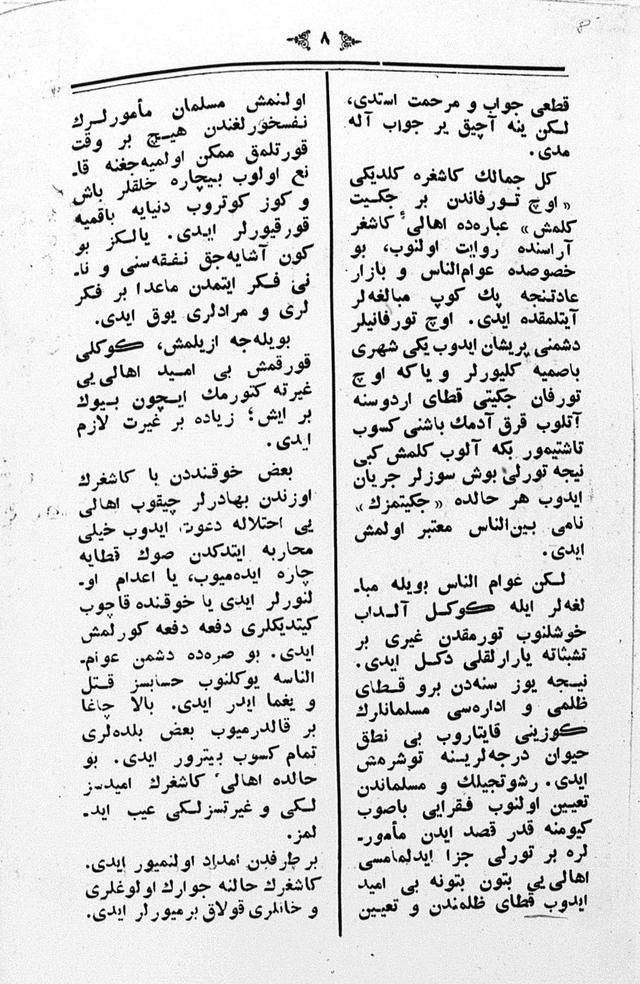 ٨
قطعی جواب و مرحمت استدی،
لـکن ینه آچیق یر جواب آله
مدی.
کل جمالك کاشغره کلدیکی
«اوچ تـورفاندن بر جکیت
کلمش» عباره‌ده اهالیٔ کاشغر
آراسنده روایت اولنوب، بو
خصوصده عوام‌الناس و بازار
عادتنجه پك کوپ مبالغه‌لر
آیتلمقده ایدی. اوچ تورفانیلر
دشمنی پریشان ایدوب یکی شهری
باصمیه کلیورلر و یاکه اوچ
تورفان جکیتی قطای اردوسنه
آتلوب قرق آدمك باشنی کسوب
تاشتیمور بکه آلوب کلمش کبی
نیجه تورلی بوش سوزلر جریان
ایدوب هر حالده «جکیتمزك»
نامی بین‌الناس معتبر اولمش
ایدی.
لـکن عوام الناس بویله مبا-
لغه‌لر ایله کوکـل آلـداب
خوشلنوب تورمقدن غیری بر
تشبثاته یارارلقلی دکـل ایدی.
نیـجه یوز سنه‌دن برو قـطای
ظلمی و اداره‌سی مسلمانارك
کوزینی قایتاروب بی نطق
حیوان درجه‌لریـنه توشرمش
ایدی. رشوتجیلك و مسلماندن
تعیین اولنوب فـقرایی باصوب
کیومنه قدر قصد ایدن مأمور-
لره بر تورلی جزا ایدلمامسی
اهالی‌یی بتون بتونه بی امید
ایدوب قطای ظلمندن و تعیین
اولـنمش مسلمان مأمورلـرك
نـفسخورلغندن هیـچ بر وقت
قورتلمق ممکن اولمیه‌جغنه قا-
نع اولوب بیچاره خلقلر باش
و کوز کوتروب دنیایه باقمیه
قورقیورلر ایـدی. یالـکز بو
کون آشایه‌جق نـفقه‌سنی و نا-
نی فـکر ایتمدن ماعدا بر فـکر
لری و مرادلری یوق ایدی.
بویله‌جه ازیلمش، کوکلی
قورقمش بی امـید اهالی‌یی
غیرته کتورمك ایـچون بیوك
بر ایش؛ زیاده بر غیرت لازم
ایدی.
بعض خوقنـددن با کاشغرك
اوزندن بهادرلر چیقوب اهالی
یی احتلاله دعوت ایدوب خیلی
محاربه ایتدکدن صوك قطایه
چاره ایده‌میوب، یا اعدام او-
لنورلر ایدی یا خوقنده قاچوب
کیتدیکلری دفعه دفعه کورلمش
ایدی. بو صره‌ده دشمن عوام-
الناسه یوکلنوب حسابسز قـتل
و یغما ایدر ایدی. بالا چاغا
بر قالدرمیوب بعض بلده‌لری
تمام کسوب بیتـرور ایدی. بو
حالده اهالیٔ کاشغرك امیدسز
لـکی و غیرتسزلـکی عیب ایدـ
لمز.
بر طرفدن امداد اولنمیور ایدی.
کاشغرك حالنه جوارك اولوغلری
و خانلری قولاق برمیورلر ایدی.